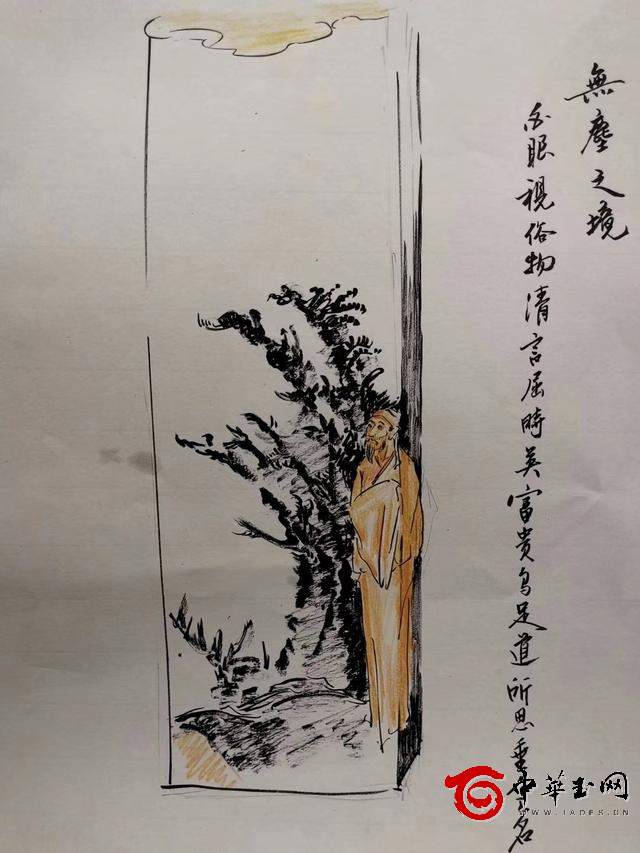 無塵之境
白眼視俗物清言屈時英富贵烏足道所思垂令名
中華玉网
WWW.IADES.CN